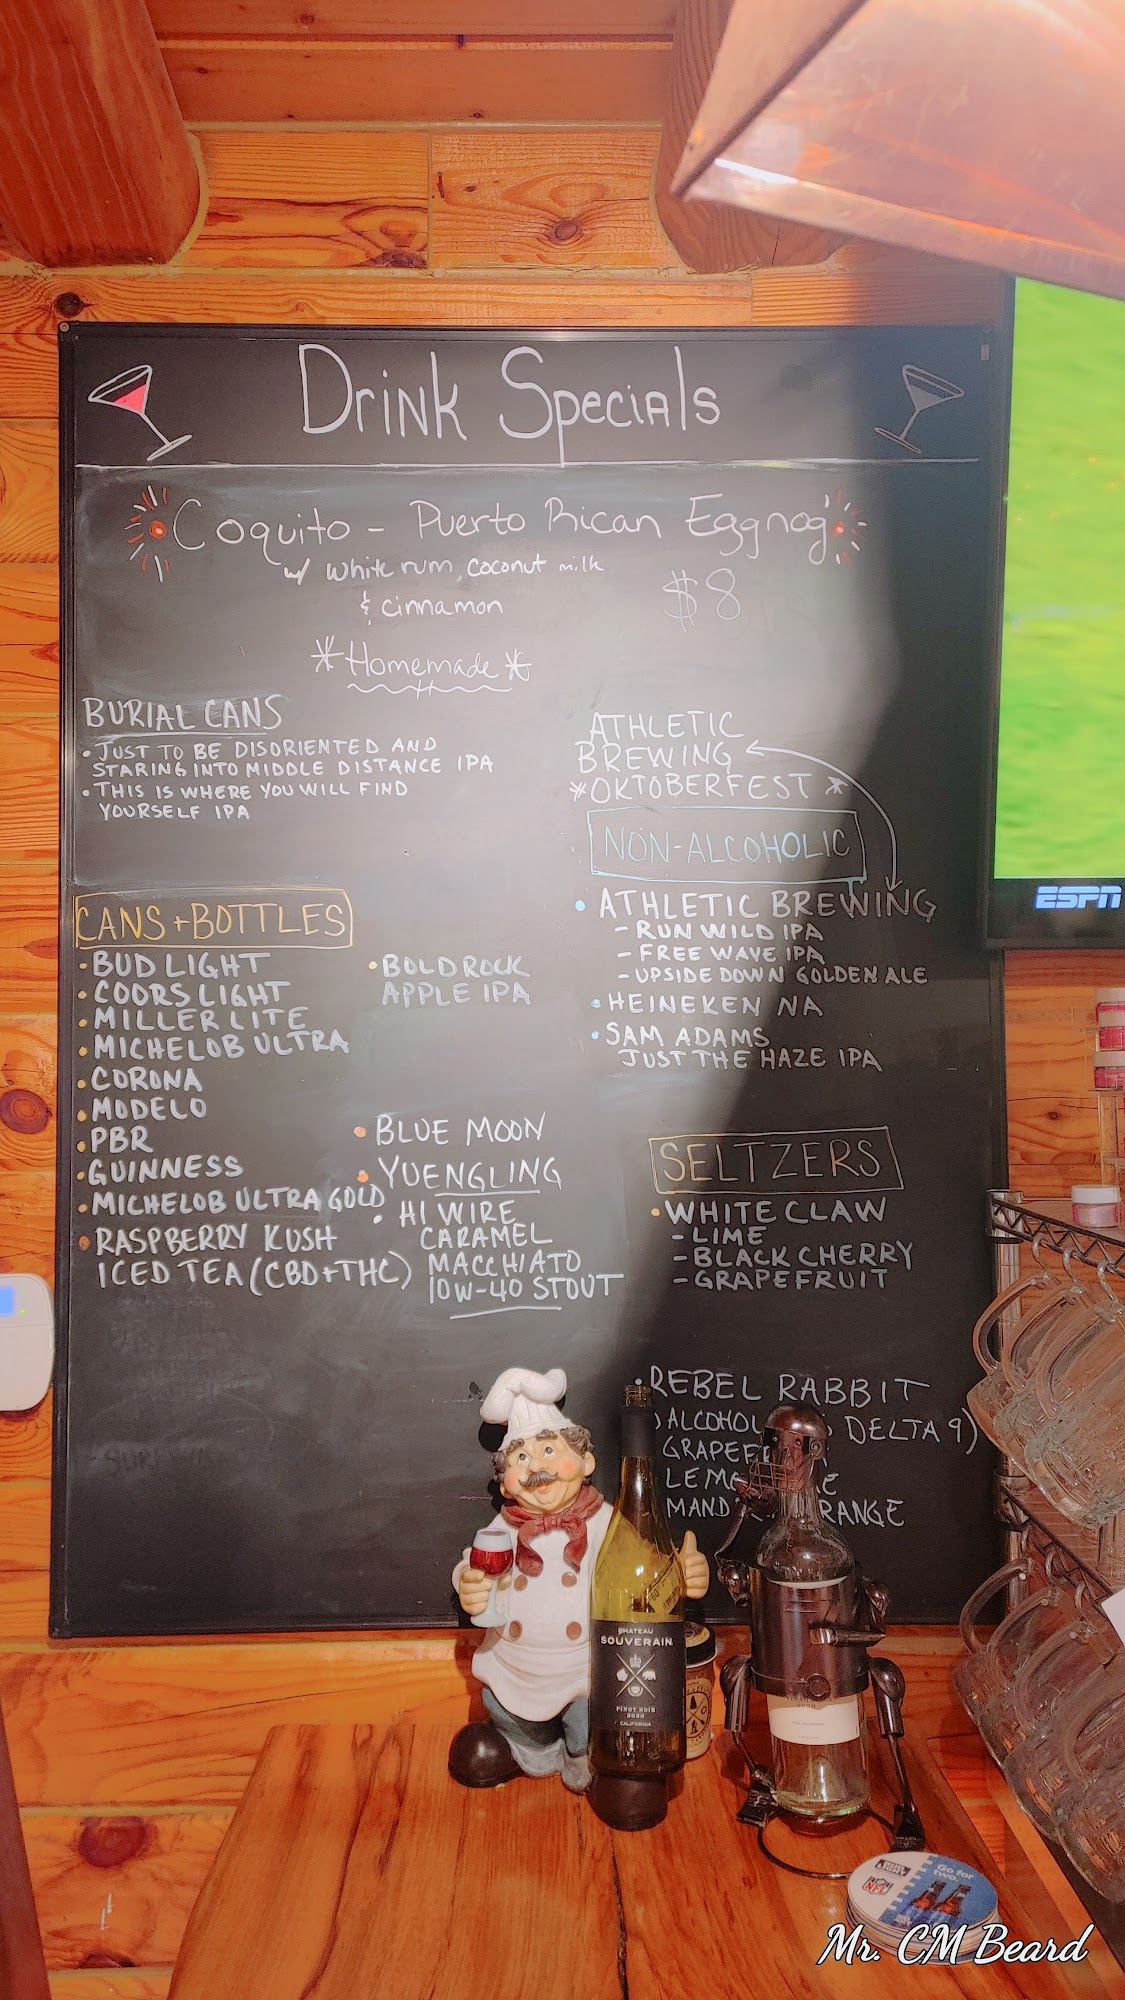 Drink Specials
Coquito - Puerto Rican Eggnog
w/ white rum, coconut milk
& cinnamon
$8
*Homemade*
BURIAL CANS
• JUST TO BE DISORIENTED AND
STARING INTO MIDDLE DISTANCE IPA
• THIS IS WHERE YOU WILL FIND
YOURSELF IPA
CANS + BOTTLES
• BUD LIGHT
• COORS LIGHT
• MILLER LITE
• MICHELOB ULTRA
• CORONA
• MODELO
• PBR
• GUINNESS
• MICHELOB ULTRA GOLD
• RASPBERRY KUSH
ICED TEA (CBD+THC)
• BOLD ROCK
APPLE IPA
• BLUE MOON
• YUENGLING
• HI WIRE
CARAMEL
MACCHIATO
10W-40 STOUT
ATHLETIC
BREWING
*OKTOBERFEST*
NON-ALCOHOLIC
• ATHLETIC BREWING
- RUN WILD IPA
- FREE WAVE IPA
- UPSIDE DOWN GOLDEN ALE
• HEINEKEN NA
• SAM ADAMS
JUST THE HAZE IPA
SELTZERS
• WHITE CLAW
- LIME
- BLACK CHERRY
- GRAPEFRUIT
• REBEL RABBIT
DELTA 9)
ESPN
CHATEAU
SOUVERAIN
PINOT NOIR
2020
CALIFORNIA
CALIFORNIA
Go for
two.
NFL
Mr. CM Beard